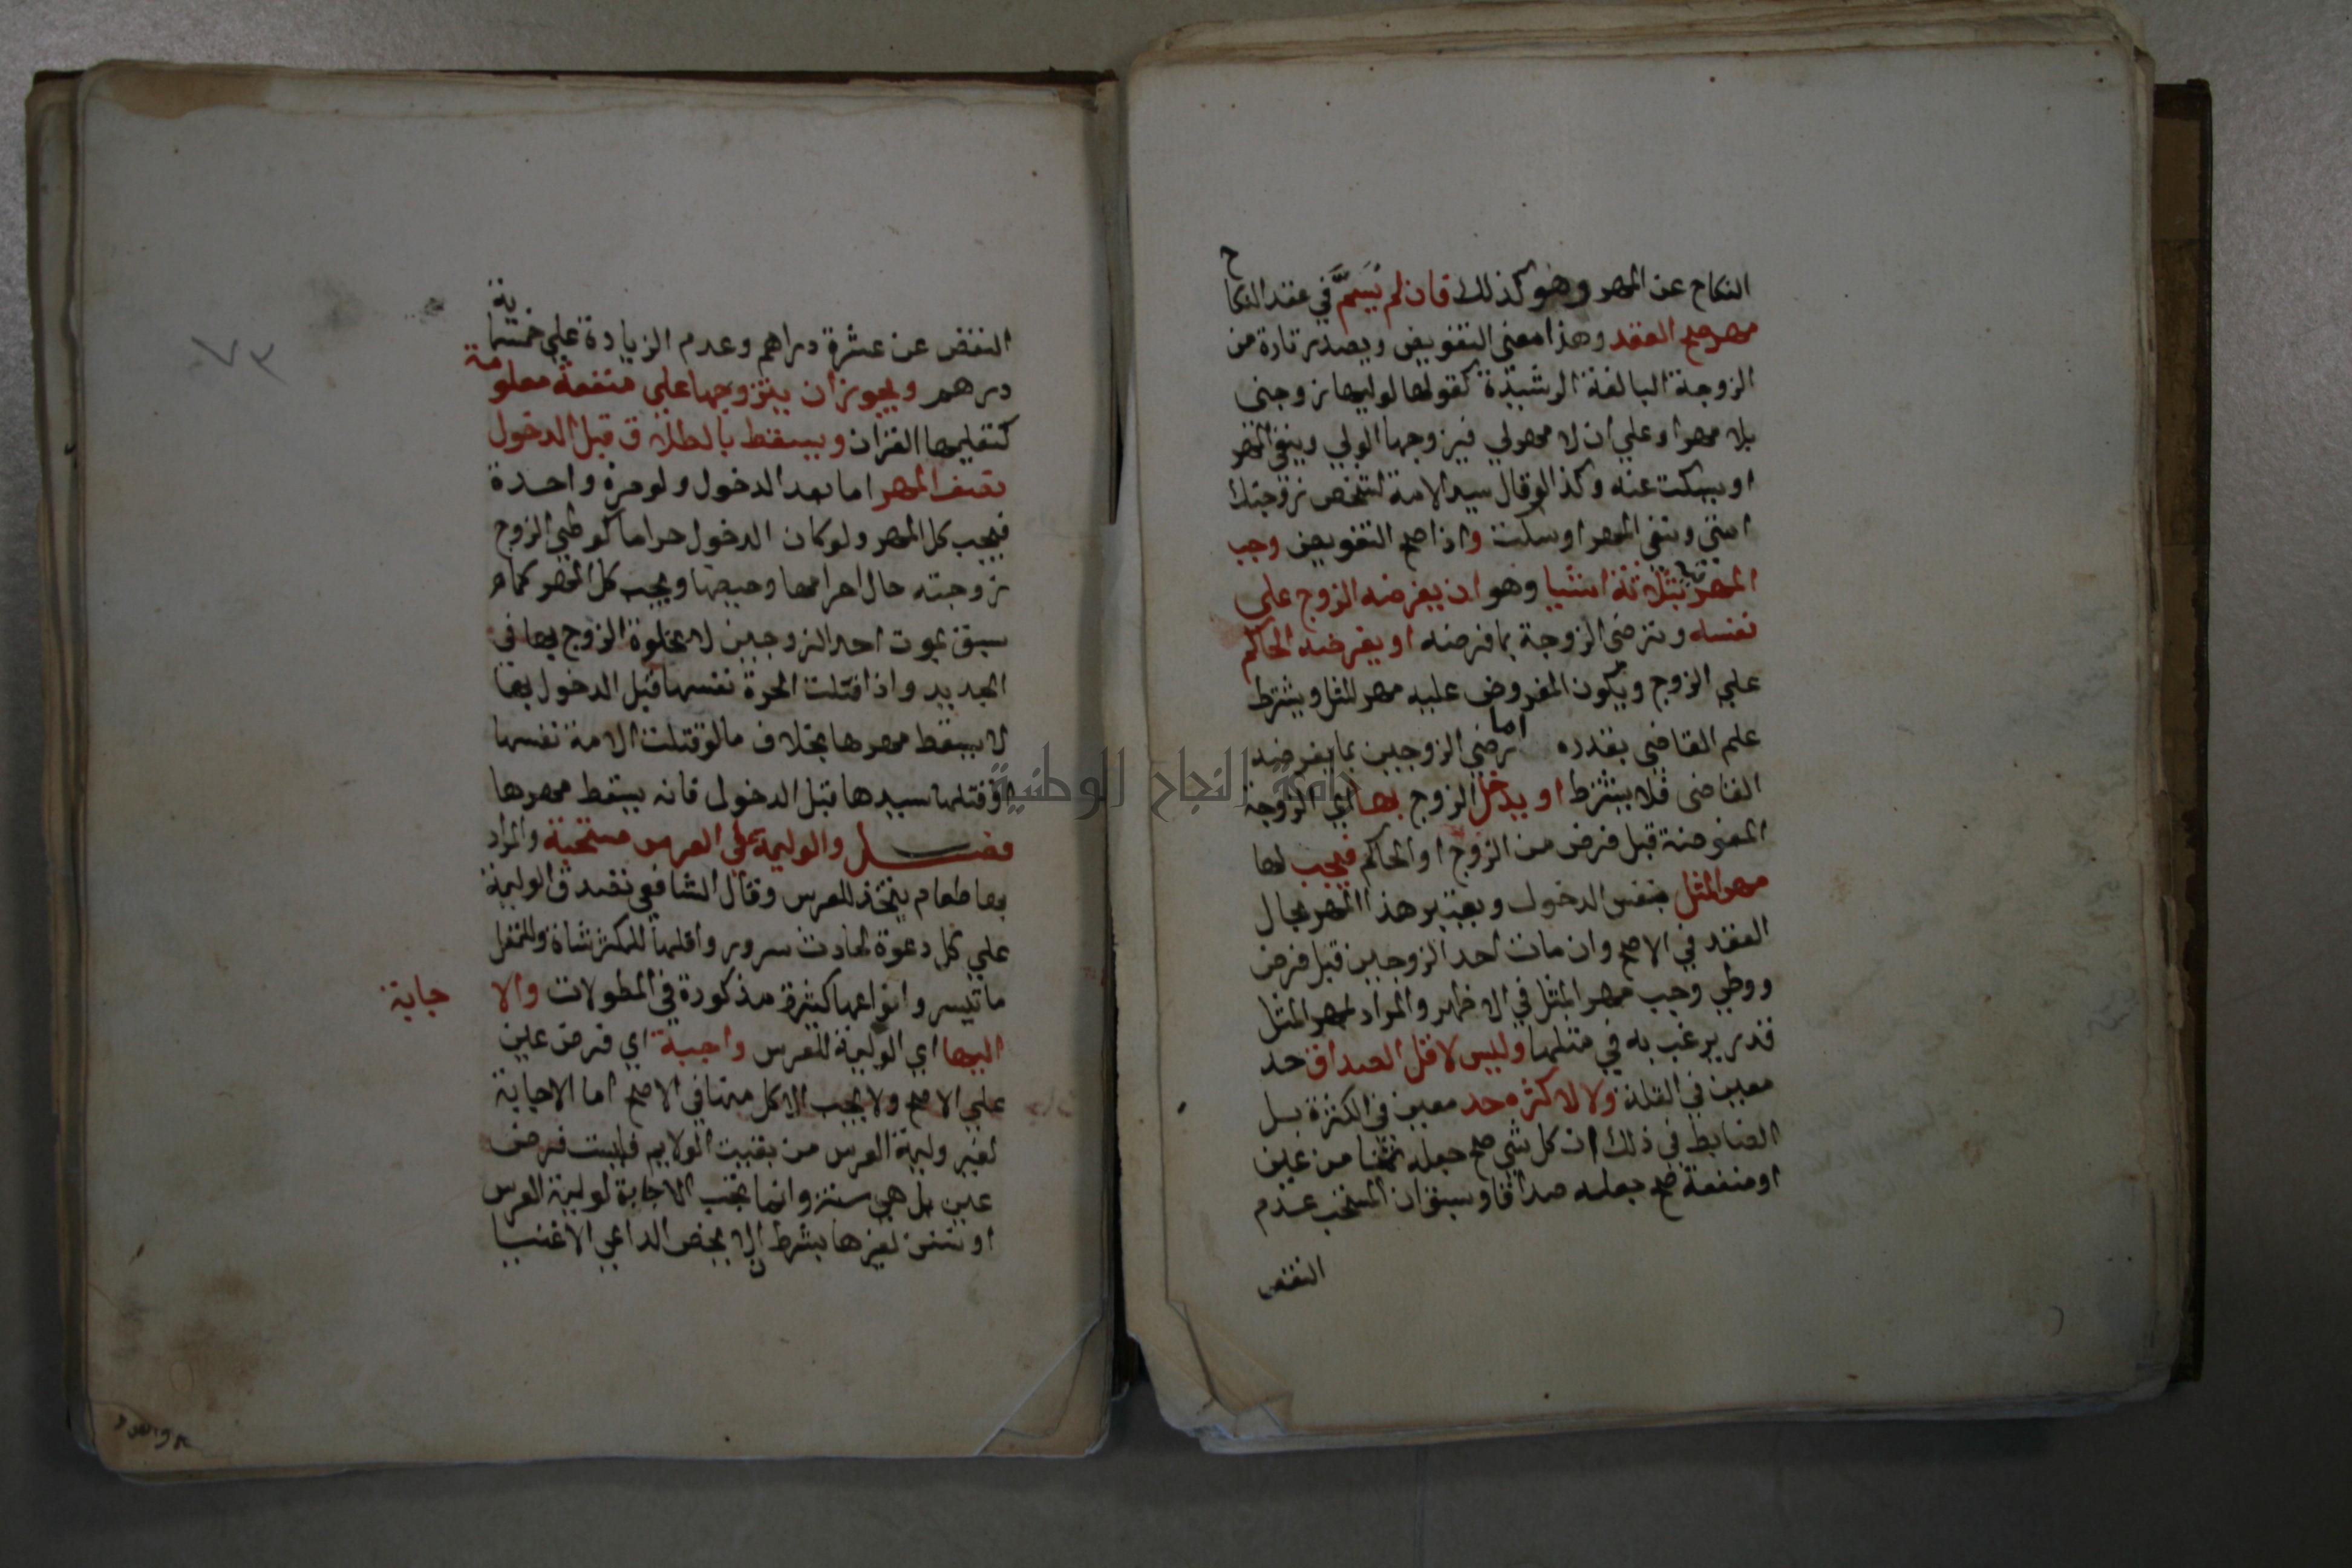 النكاح عن المهر وهو كذلك فان لم يُسَمَّ في عقد النكاح
مهر صح العقد وهذا معني التفويض ويصدر تارة من
الزوجة البالغة الرشيدة كقولها لوليها زوجني
بلا مهر او علي ان لا مهر لي فيزوجها الولي وينفي المهر
او يسكت عنه وكذا لو قال سيد الامة لشخص زوجتك
امتي ونفي المهر او سكت واذا صح التفويض وجب
المهر بثلاثة اشيا وهو ان يفرضه الزوج علي
نفسه وترضي الزوجة بما فرضه او يفرضه الحاكم
علي الزوج ويكون المفروض عليه مهر المثل ويشترط
علم القاضي بقدره اما رضي الزوجين بما يفرضه
القاضي فلا يشترط او يدخل الزوج بها اي الزوجة
المفوضة قبل فرض من الزوج او الحاكم فيجب لها
مهر المثل بنفس الدخول ويعتبر هذا المهر بحال
العقد في الاصح وان مات احد الزوجين قبل فرض
ووطي وجب مهر المثل في الاظهر والمراد بمهر المثل
قدر يرغب به في مثلها وليس لاقل الصداق حد
معين في القلة ولا لاكثره حد معين في الكثرة بل
الضابط في ذلك ان كل شي صح جعله ثمنا من عين
او منفعة صح جعله صداقا وسبق ان المستحب عدم
النقص
النقص عن عشرة دراهم وعدم الزيادة علي خمسماية
درهم ويجوز ان يتزوجها علي منفعة معلومة
كتعليمها القران ويسقط بالطلاق قبل الدخول
نصف المهر اما بعد الدخول ولو مرة واحدة
فيجب كل المهر ولو كان الدخول حراما كوطي الزوج
زوجته حال احرامها وحيضها ويجب كل المهر كما مر
سبق بموت احد الزوجين لا بخلوة الزوج بها في
الجديد واذا قتلت الحرة نفسها قبل الدخول بها
لا يسقط مهرها بخلاف ما لو قتلت الامة نفسها
او قتلها سيدها قبل الدخول فانه يسقط مهرها
فصل والوليمة علي العرس مستحبة والمراد
بها طعام يتخذ للعرس وقال الشافعي تصدق الوليمة
علي كل دعوة لحادث سرور واقلها للمكثر شاة وللمقل
ما تيسر وانواعها كثيرة مذكورة في المطولات والاجابة
اليها اي الوليمة للعرس واجبة اي فرض عين
علي الاصح ولا يجب الاكل منها في الاصح اما الاجابة
لغير وليمة العرس من بقيت الولايم فليست فرض
عين بل هي سنة وانما تجب الاجابة لوليمة العرس
او تسن لغيرها بشرط ان لا يخص الداعي الاغنيا
٧٣
جامعة النجاح الوطنية